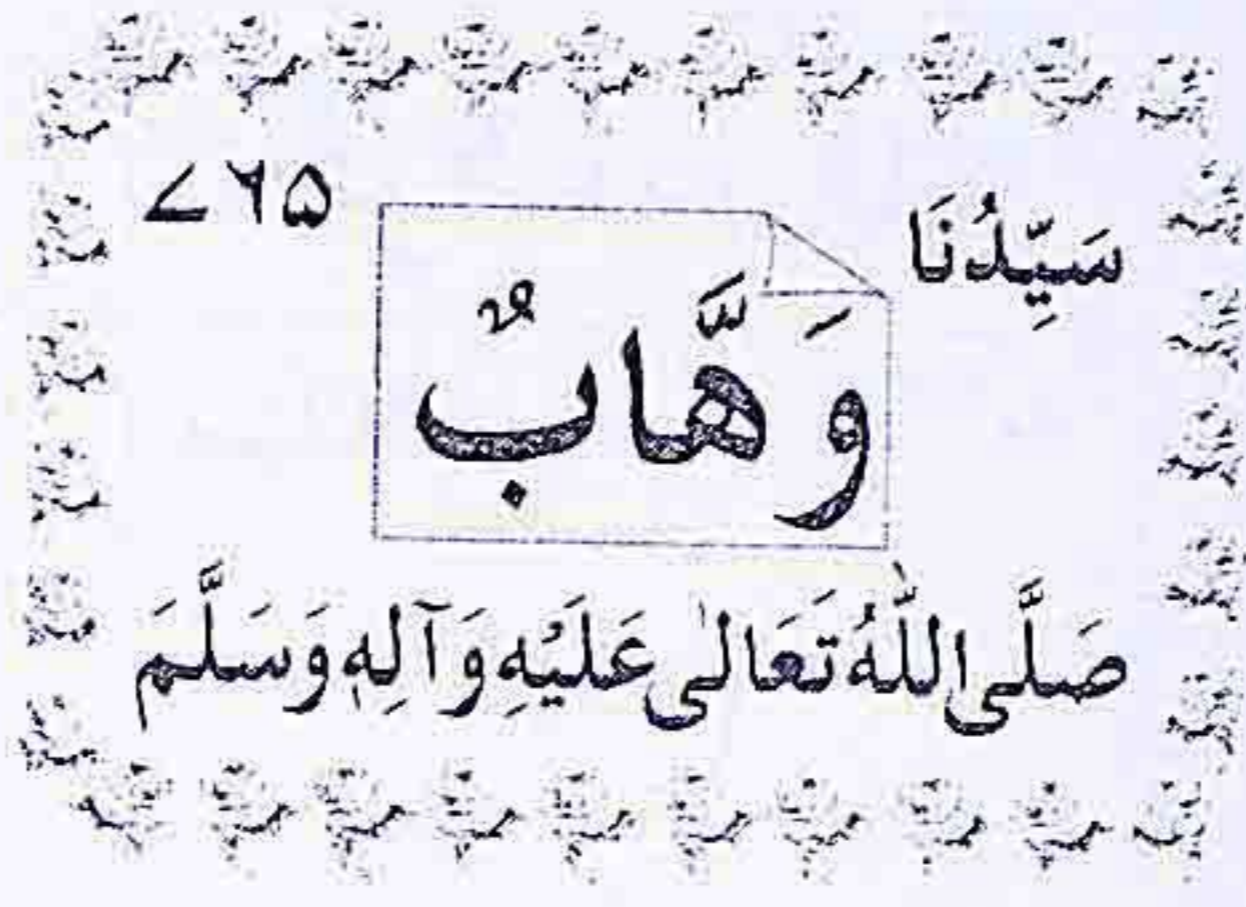 سَيِّدُنَا ۷۶۵
وَهَّابٌ
صَلَّى اللّٰهُ تَعَالٰى عَلَيْهِ وَآلِهٖ وَسَلَّمَ